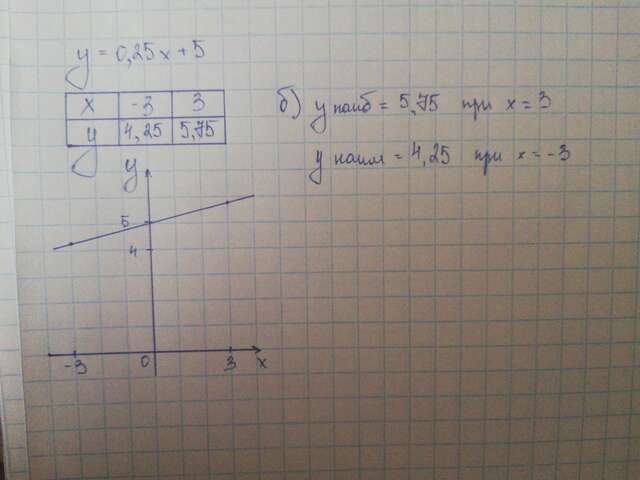 y = 0,25x + 5
x -3 3
y 4,25 5,75
б) y наиб = 5,75 при x = 3
y наим = 4,25 при x = -3
y
5
4
-3 0 3 x